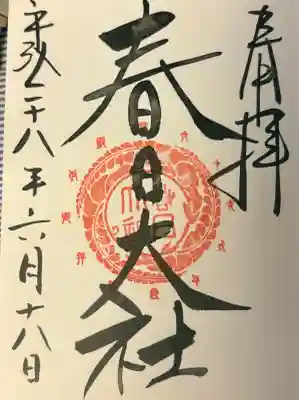 奉拝
春日大社
平成二十八年六月十八日